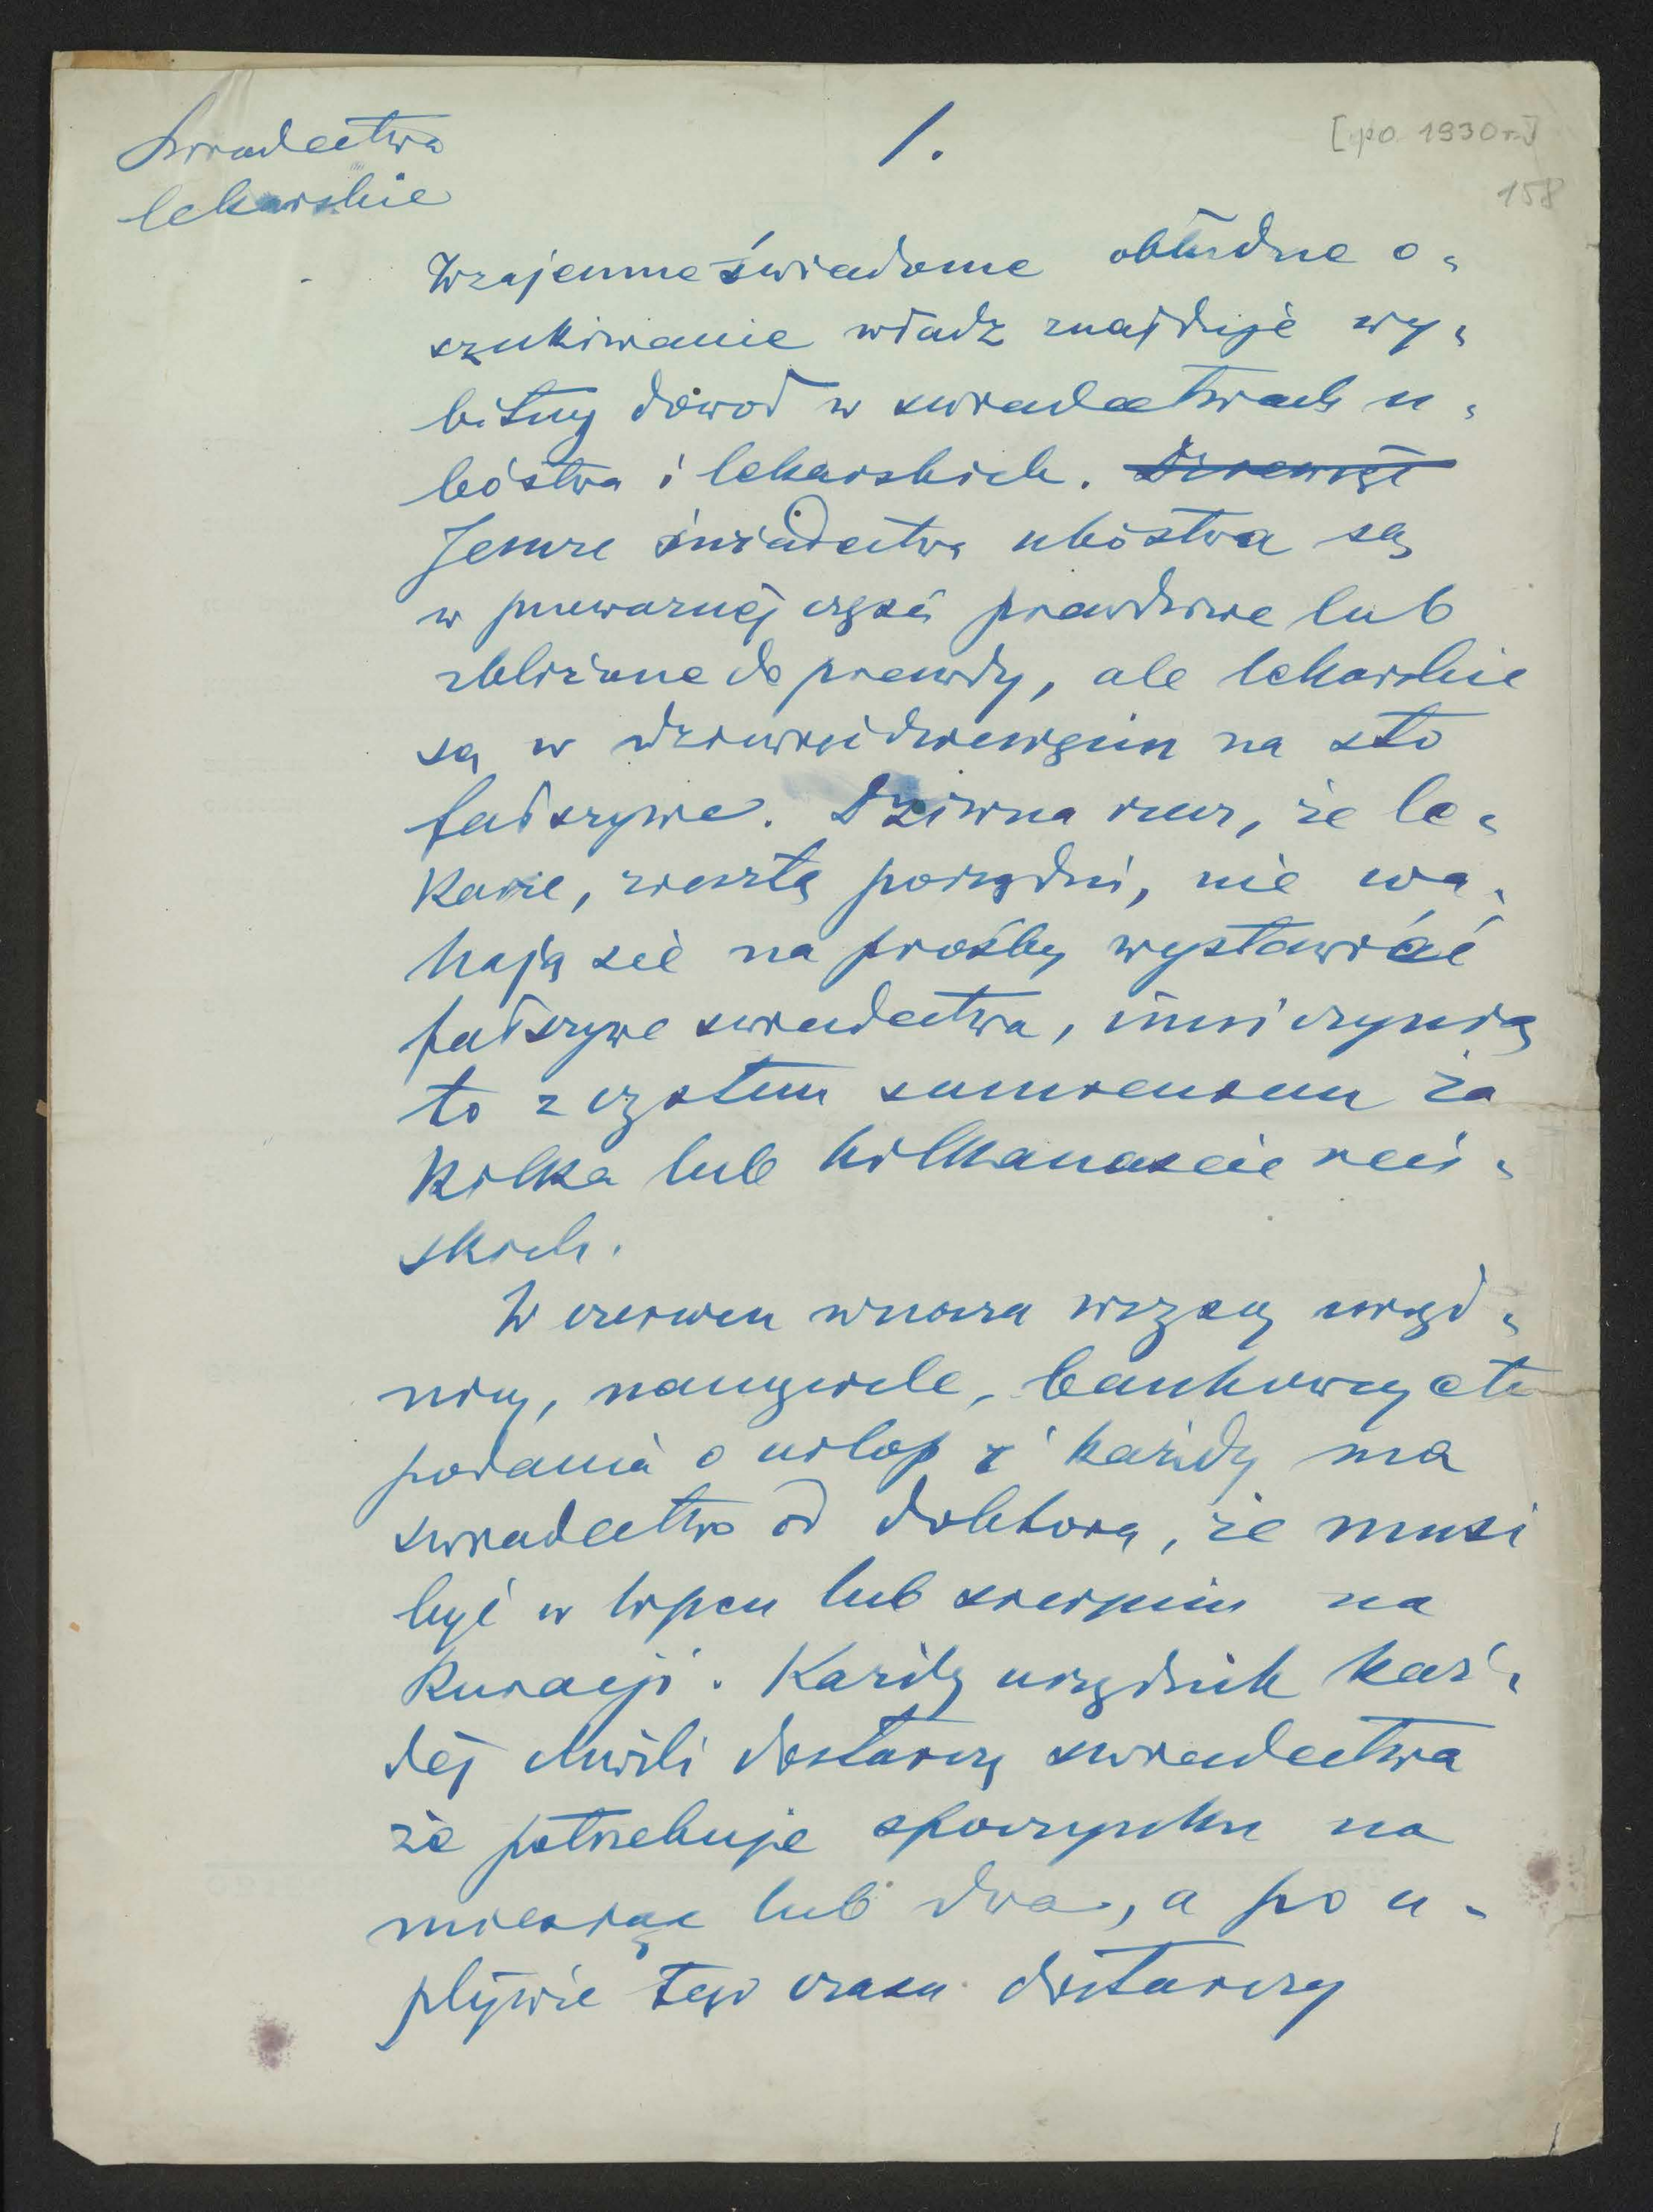 Świadectwa
lekarskie
1.
[po 1930 r.]
158
Wzajemne świadome obłudne o-
szukiwanie władz znajduje wy-
bitny dowód w świadectwach u-
bóstwa i lekarskich. Dziewięć
Jeszcze świadectwa ubóstwa są
w poważnej części prawdziwe lub
zbliżone do prawdy, ale lekarskie
są w dziewięćdziesięciu na sto
fałszywe. Dziwna rzecz, że le-
karze, zresztą porządni, nie wa-
hają się na prośby wystawiać
fałszywe świadectwa, inni czynią
to z czystem sumieniem za
kilka lub kilkanaście reń-
skich.
W czerwcu wnoszą wszyscy urzęd-
nicy, nauczyciele, bankowcy etc
podania o urlop i każdy ma
świadectwo od doktora, że musi
być w lipcu lub sierpniu na
kuracji. Każdy urzędnik każ-
dej chwili dostarczy świadectwa
że potrzebuje spoczynku na
miesiąc lub dwa, a po u-
pływie tego czasu dostarczy